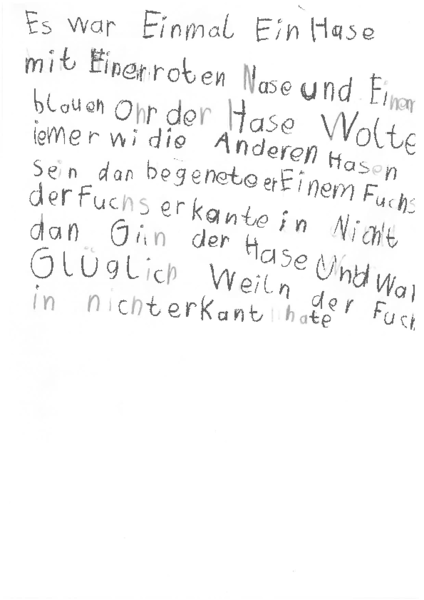 Es war Einmal Ein Hase
mit Einer roten Nase und Einem
blauen Ohr der Hase Wolte
iemer wi die Anderen Hasen
sein dan begenete er Einem Fuchs
der Fuchs erkante in Nicht
dan Giin der Hase Und War
Glüglich Weiln der Fuch
in nicht erkant hate